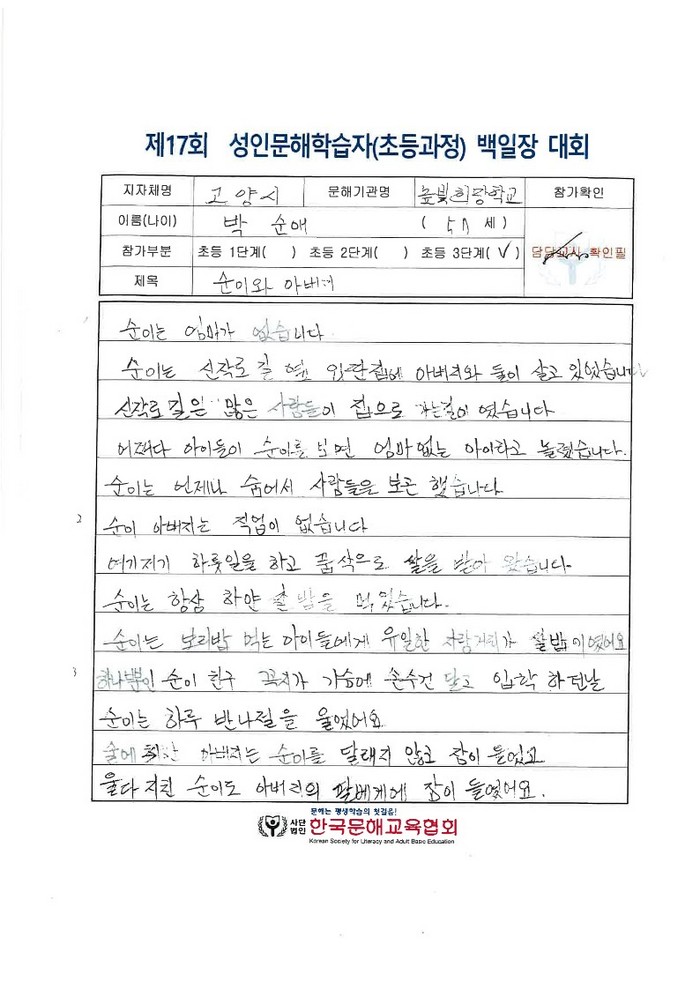 제17회 성인문해학습자(초등과정) 백일장 대회
지자체명 고양시 문해기관명 높빛희망학교 참가확인
이름(나이) 박순애 ( 세)
참가부분 초등 1단계( ) 초등 2단계( ) 초등 3단계(√) 담당교사 확인필
제목 순이와 아버지
순이는 엄마가 없습니다
순이는 신작로 길 옆 외딴집에 아버지와 둘이 살고 있었습니다
신작로 길은 많은 사람들이 집으로 가는길이 였습니다
어쩌다 아이들이 순이를 보면 엄마없는 아이라고 놀렸습니다.
순이는 언제나 숨어서 사람들을 보곤 했습니다
2 순이 아버지는 직업이 없습니다
여기저기 하룻일을 하고 품삭으로 쌀을 받아 왔습니다-
순이는 항상 하얀 쌀밥을 먹었습니다.
순이는 보리밥 먹는 아이들에게 유일한 자랑거리가 쌀밥이였어요
3 하나뿐인 순이 친구 꼭지가 가슴에 손수건 달고 입학 하던날
순이는 하루 반나절을 울었어요
술에 취한 아버지는 순이를 달래지 않고 잠이 들었고
울다 지친 순이도 아버지의 팔베게에 잠이 들였어요.
문해는 평생학습의 첫걸음!
사단법인 한국문해교육협회
Korean Society for Literacy and Adult Basic Education